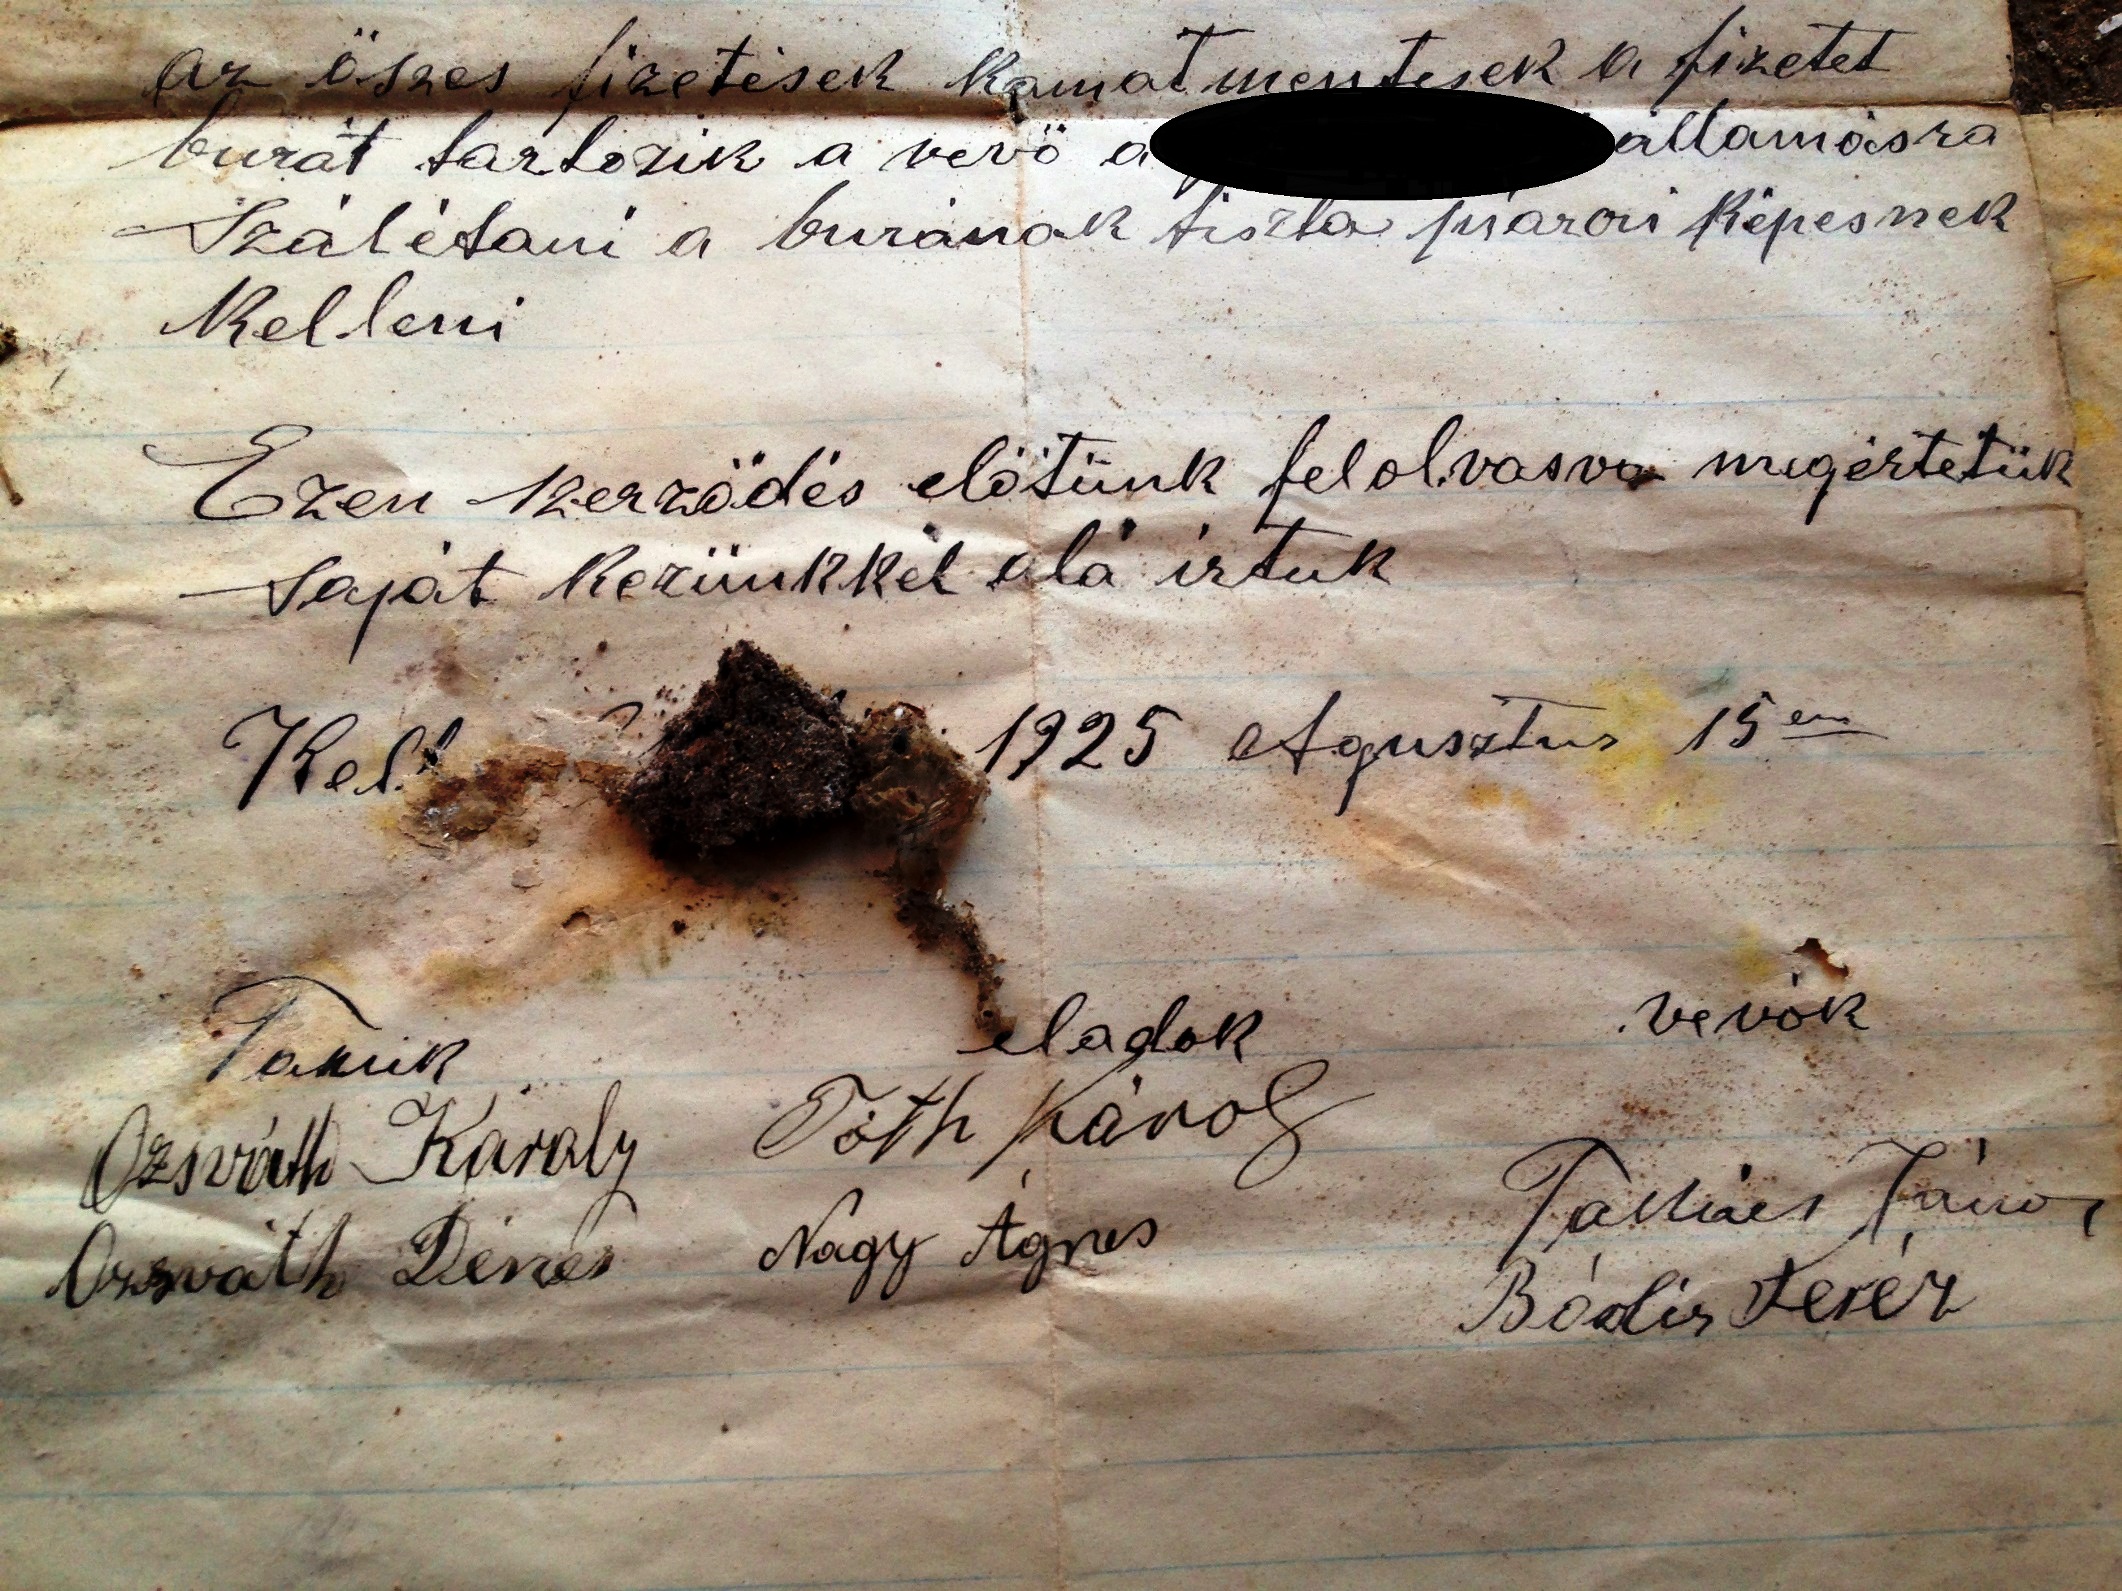 az öszes fizetések kamatmentesek a fizetet
buzát tartozik a vevö a államásra
Szálétani a buzának tiszta piaczi Képesnek
Kelleni
Ezen szerzödés elötünk felolvasva megértetük
saját kezünkkel alá irtuk
Kelt 1925 Agusztus 15 en
Tanuk eladok vevök
Ozsváth Károly Tóth Károly
Nagy Ágnes
Ozsváth Dénes Takács János
Bódis Teréz